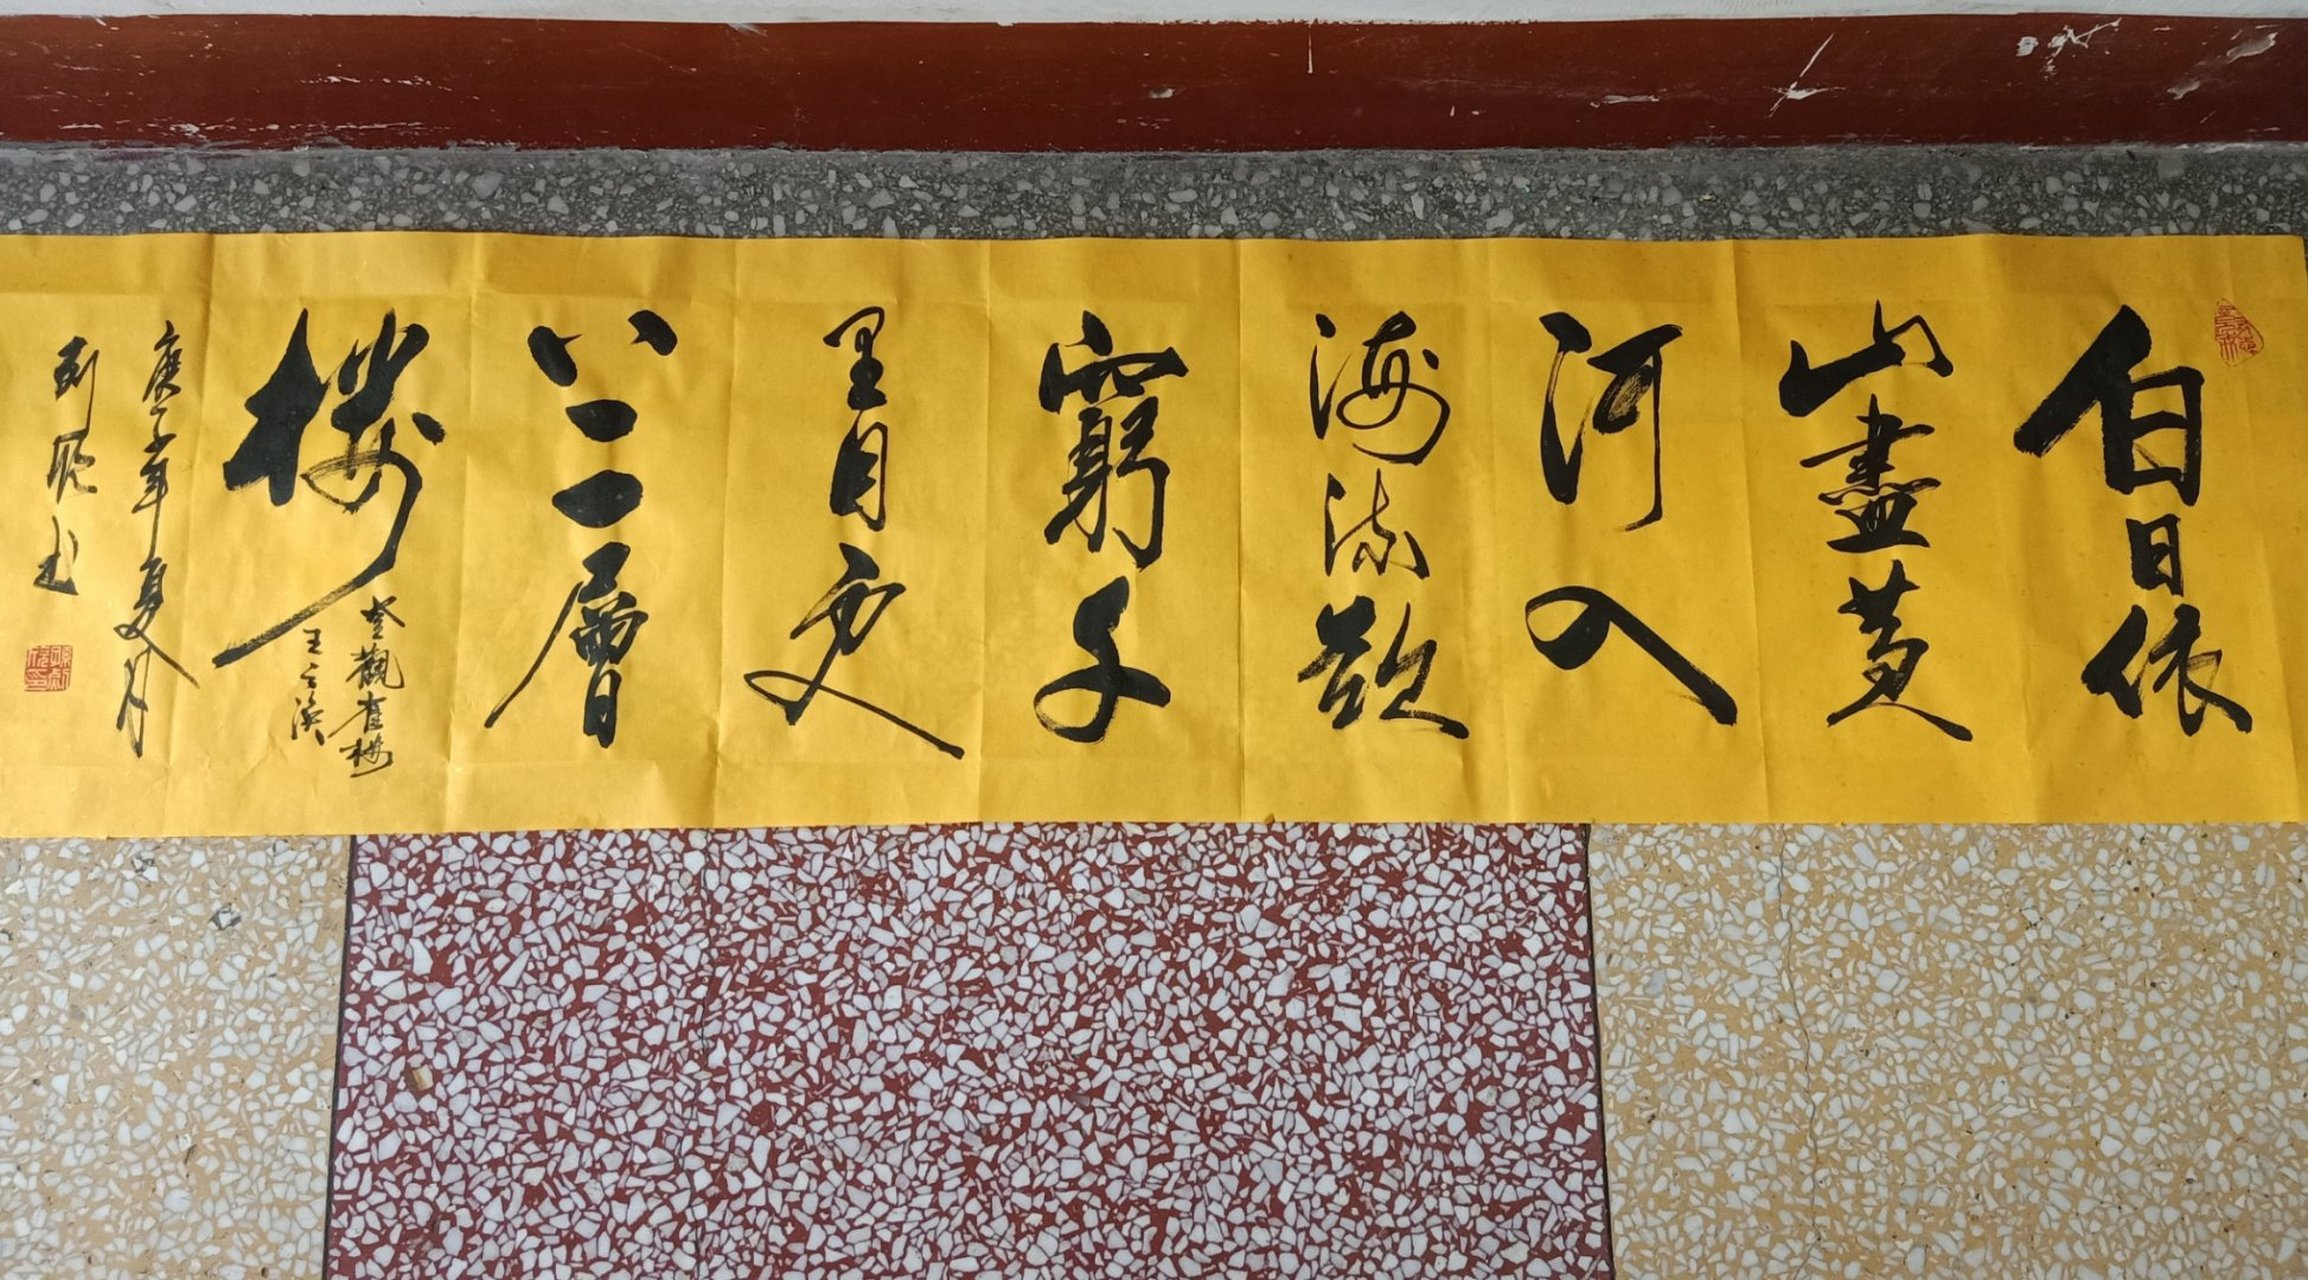 白日依
山盡黄
河入
海流欲
窮千
里目更
上一層
樓
登觀雀樓
王之渙
庚子年夏月
书